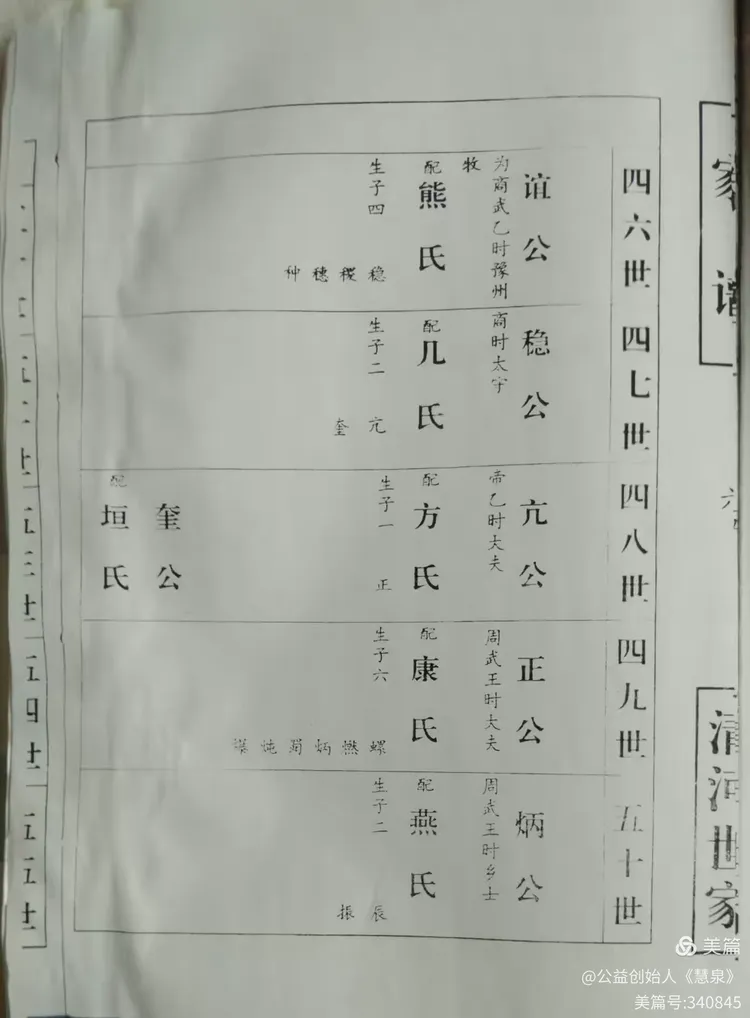 家谱
清河世家
四六世
谊公
为商武乙时豫州
牧
配熊氏
生子四
稳 稷 穗 种
四七世
稳公
商时太宇
配几氏
生子二
亢 奎
四八世
亢公
帝乙时大夫
配方氏
生子一
正
奎公
配垣氏
四九世
正公
周武王时大夫
配康氏
生子六
炳
五十世
炳公
周武王时乡士
配燕氏
生子二
辰 振
五三世
五四世
五五世
美篇
@公益创始人《慧泉》
美篇号:340845